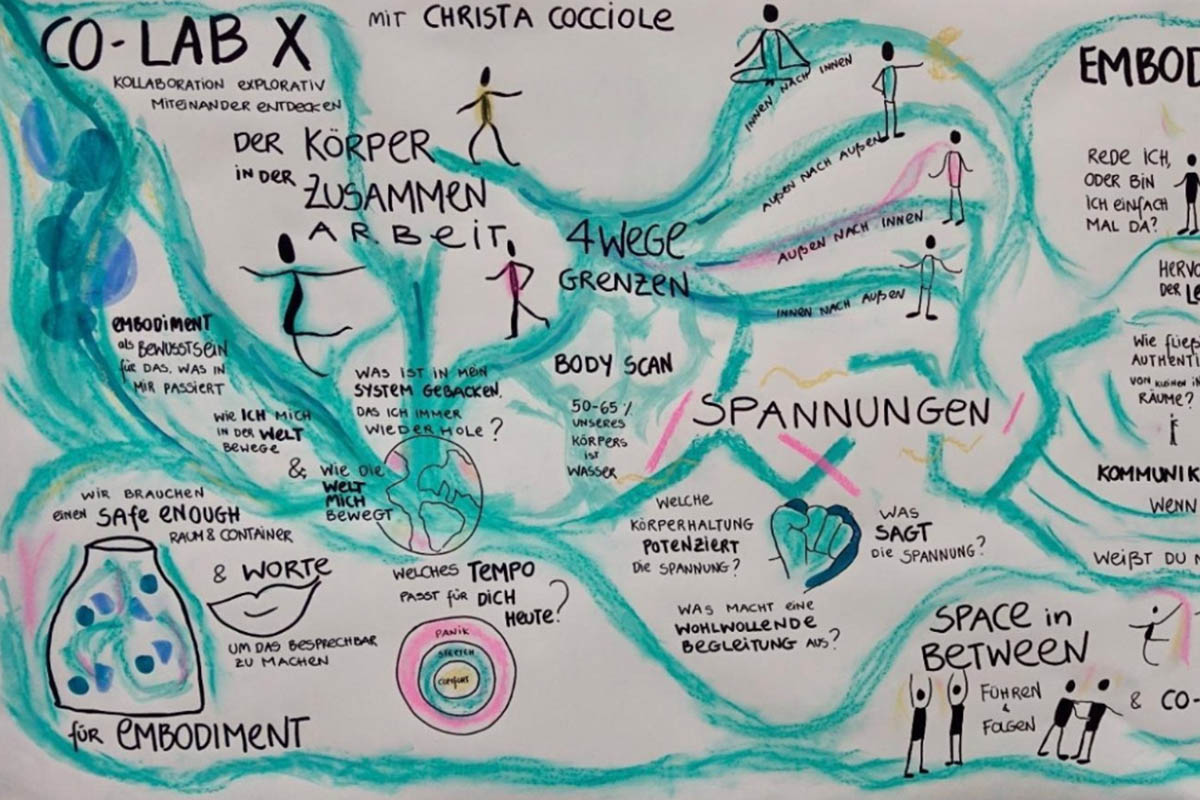 CO-LAB X
KOLLABORATION EXPLORATIV
MITEINANDER ENTDECKEN
MIT CHRISTA COCCIOLE
DER KÖRPER
IN DER
ZUSAMMEN
ARBEIT
EMBODIMENT
als BEWUSSTSEIN
FÜR DAS, WAS IN
MIR PASSIERT
WIE ICH MICH
IN DER WELT
BEWEGE
& WIE DIE
WELT
MICH
BEWEGT
WAS IST IN MEIN
SYSTEM GEBACKEN.
DAS ICH IMMER
WIEDERHOLE?
4 WEGE
GRENZEN
INNEN NACH INNEN
AUßEN NACH AUßEN
AUßEN NACH INNEN
INNEN NACH AUßEN
BODY SCAN
50-65%
UNSERES
KÖRPERS
IST
WASSER
SPANNUNGEN
WELCHE
KÖRPERHALTUNG
POTENZIERT
DIE SPANNUNG?
WAS
SAGT
DIE SPANNUNG?
WAS MACHT EINE
WOHLWOLLENDE
BEGLEITUNG AUS?
WIR BRAUCHEN
EINEN SAFE ENOUGH
RAUM & CONTAINER
& WORTE
UM DAS BESPRECHBAR
ZU MACHEN
für EMBODIMENT
WELCHES TEMPO
PASST FÜR DICH
HEUTE?
PANIK
STRETCH
COMFORT
SPACE in
BETWEEN
FÜHREN
&
FOLGEN
& CO-
EMBOD
REDE ICH,
ODER BIN
ICH EINFACH
MAL DA?
HERVO
DER LE
WIE
AUTHENTI
VON KLEINEN IN
RÄUME?
KOMMUNIK
WENN
WEIßT DU